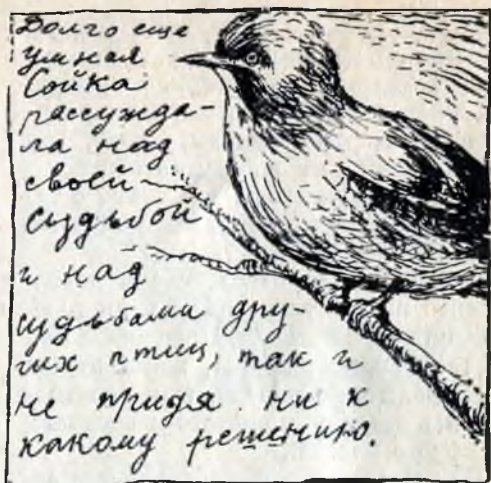 Долго еще
умная
Сойка
рассужда-
ла над
своей
судьбой
и над
судьбами дру-
гих птиц, так и
не придя ни к
какому решению.